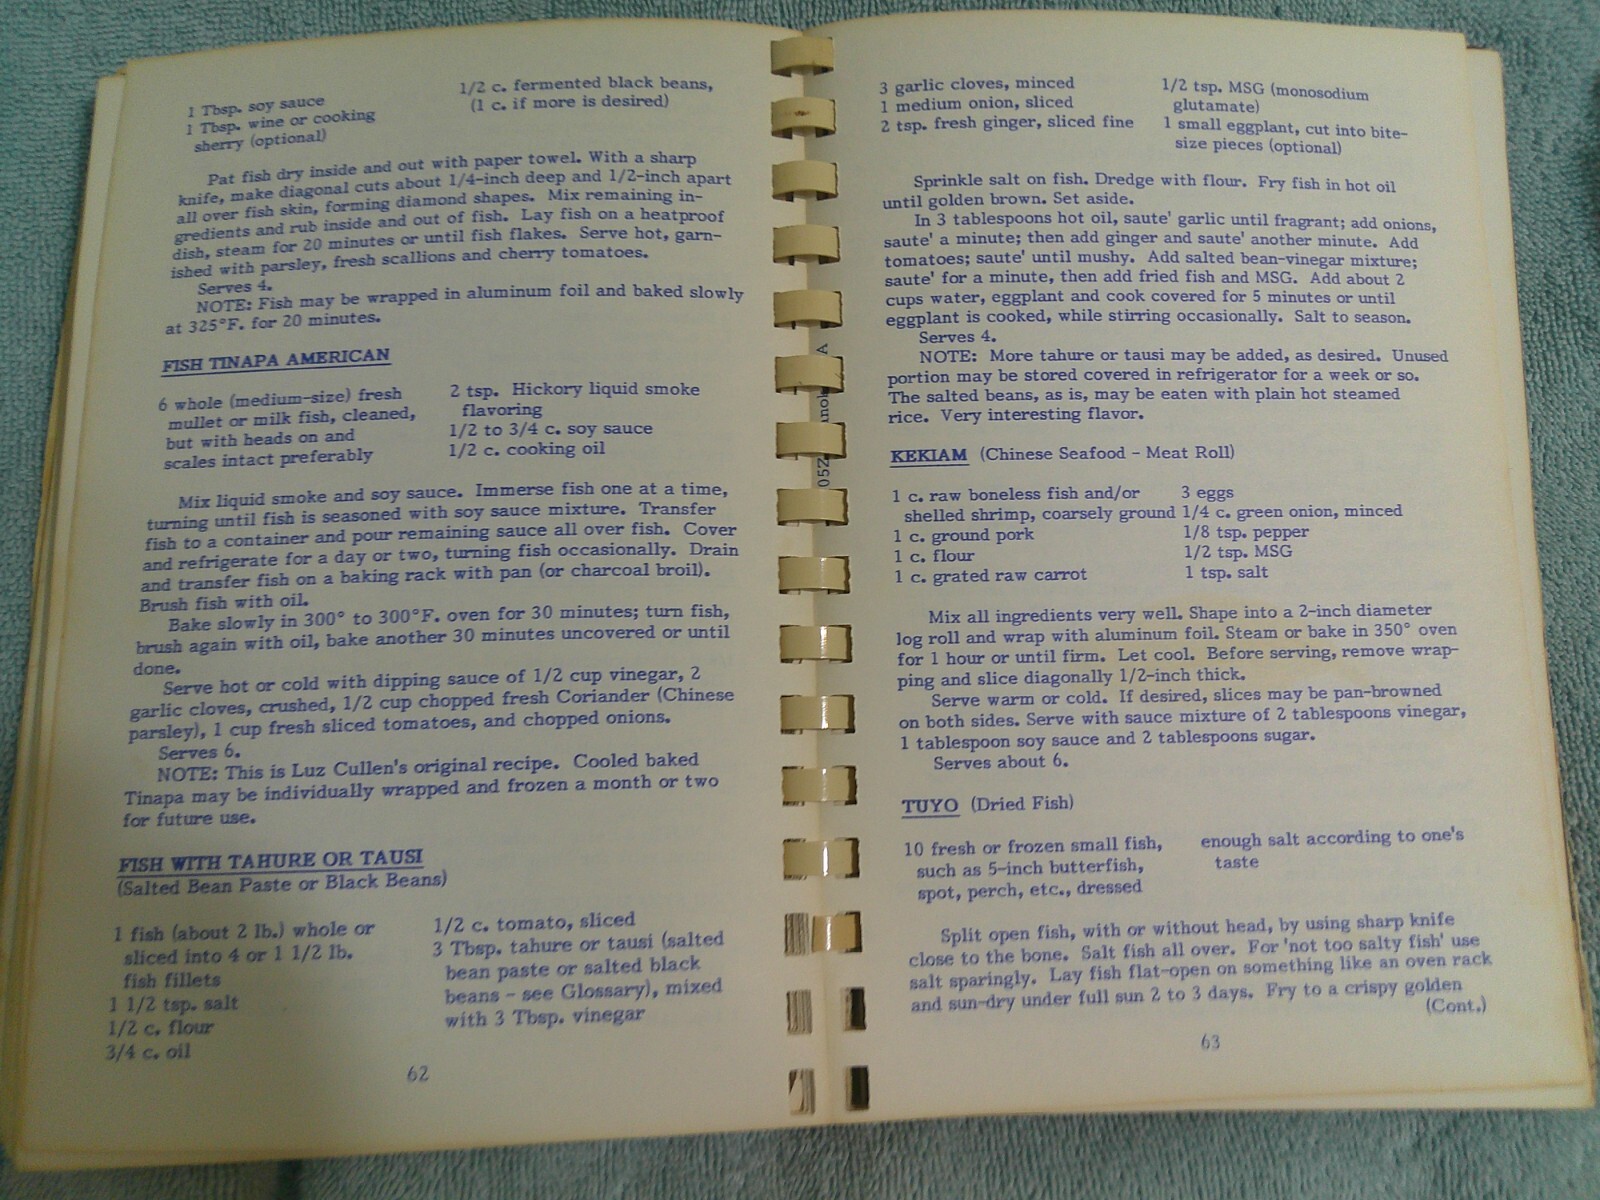 1 Tbsp. soy sauce
1 Tbsp. wine or cooking
sherry (optional)
1/2 c. fermented black beans,
(1 c. if more is desired)
Pat fish dry inside and out with paper towel. With a sharp
knife, make diagonal cuts about 1/4-inch deep and 1/2-inch apart
all over fish skin, forming diamond shapes. Mix remaining in-
gredients and rub inside and out of fish. Lay fish on a heatproof
dish, steam for 20 minutes or until fish flakes. Serve hot, garn-
ished with parsley, fresh scallions and cherry tomatoes.
Serves 4.
NOTE: Fish may be wrapped in aluminum foil and baked slowly
at 325°F. for 20 minutes.
FISH TINAPA AMERICAN
6 whole (medium-size) fresh
mullet or milk fish, cleaned,
but with heads on and
scales intact preferably
2 tsp. Hickory liquid smoke
flavoring
1/2 to 3/4 c. soy sauce
1/2 c. cooking oil
Mix liquid smoke and soy sauce. Immerse fish one at a time,
turning until fish is seasoned with soy sauce mixture. Transfer
fish to a container and pour remaining sauce all over fish. Cover
and refrigerate for a day or two, turning fish occasionally. Drain
and transfer fish on a baking rack with pan (or charcoal broil).
Brush fish with oil.
Bake slowly in 300° to 300°F. oven for 30 minutes; turn fish,
brush again with oil, bake another 30 minutes uncovered or until
done.
Serve hot or cold with dipping sauce of 1/2 cup vinegar, 2
garlic cloves, crushed, 1/2 cup chopped fresh Coriander (Chinese
parsley), 1 cup fresh sliced tomatoes, and chopped onions.
Serves 6.
NOTE: This is Luz Cullen's original recipe. Cooled baked
Tinapa may be individually wrapped and frozen a month or two
for future use.
FISH WITH TAHURE OR TAUSI
(Salted Bean Paste or Black Beans)
1 fish (about 2 lb.) whole or
sliced into 4 or 1 1/2 lb.
fish fillets
1 1/2 tsp. salt
1/2 c. flour
3/4 c. oil
1/2 c. tomato, sliced
3 Tbsp. tahure or tausi (salted
bean paste or salted black
beans - see Glossary), mixed
with 3 Tbsp. vinegar
62
3 garlic cloves, minced
1 medium onion, sliced
2 tsp. fresh ginger, sliced fine
1/2 tsp. MSG (monosodium
glutamate)
1 small eggplant, cut into bite-
size pieces (optional)
Sprinkle salt on fish. Dredge with flour. Fry fish in hot oil
until golden brown. Set aside.
In 3 tablespoons hot oil, saute' garlic until fragrant; add onions,
saute' a minute; then add ginger and saute' another minute. Add
tomatoes; saute' until mushy. Add salted bean-vinegar mixture;
saute' for a minute, then add fried fish and MSG. Add about 2
cups water, eggplant and cook covered for 5 minutes or until
eggplant is cooked, while stirring occasionally. Salt to season.
Serves 4.
NOTE: More tahure or tausi may be added, as desired. Unused
portion may be stored covered in refrigerator for a week or so.
The salted beans, as is, may be eaten with plain hot steamed
rice. Very interesting flavor.
KEKIAM (Chinese Seafood - Meat Roll)
1 c. raw boneless fish and/or
shelled shrimp, coarsely ground
1 c. ground pork
1 c. flour
1 c. grated raw carrot
3 eggs
1/4 c. green onion, minced
1/8 tsp. pepper
1/2 tsp. MSG
1 tsp. salt
Mix all ingredients very well. Shape into a 2-inch diameter
log roll and wrap with aluminum foil. Steam or bake in 350° oven
for 1 hour or until firm. Let cool. Before serving, remove wrap-
ping and slice diagonally 1/2-inch thick.
Serve warm or cold. If desired, slices may be pan-browned
on both sides. Serve with sauce mixture of 2 tablespoons vinegar,
1 tablespoon soy sauce and 2 tablespoons sugar.
Serves about 6.
TUYO (Dried Fish)
10 fresh or frozen small fish,
such as 5-inch butterfish,
spot, perch, etc., dressed
enough salt according to one's
taste
Split open fish, with or without head, by using sharp knife
close to the bone. Salt fish all over. For 'not too salty fish' use
salt sparingly. Lay fish flat-open on something like an oven rack
and sun-dry under full sun 2 to 3 days. Fry to a crispy golden
(Cont.)
63